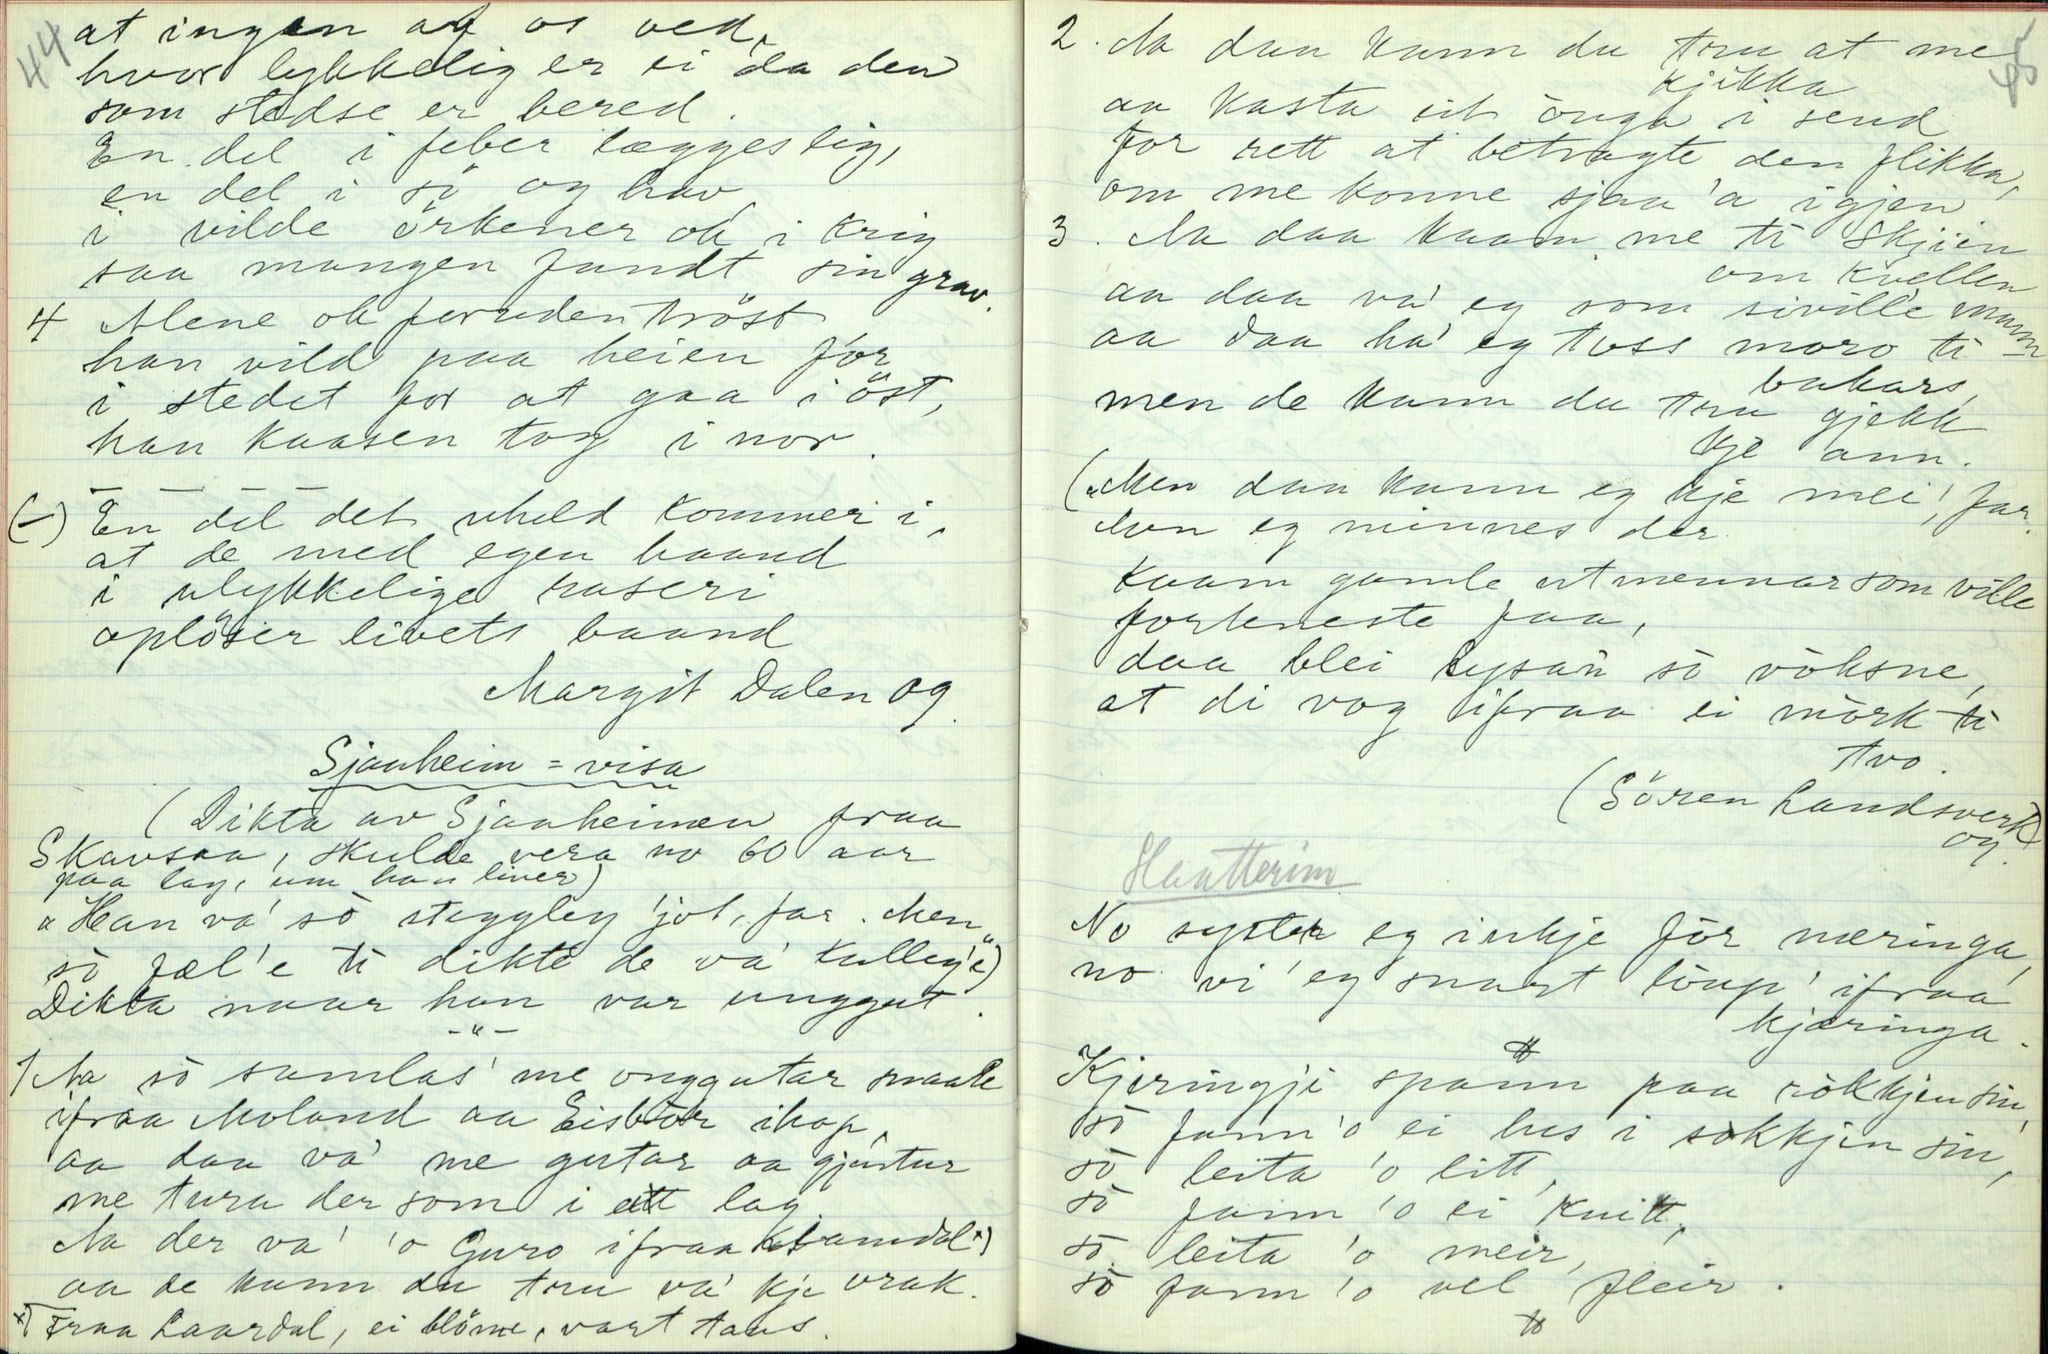 44
at ingen af os ved,
hvor lykkelig er ei da den
som stedse er bered.
En del i feber lægges lig,
en del i sö og hav
i vilde örkener ok i krig
saa mangen fandt sin grav.
4 Alene ok foruden tröst
han vild paa heien for
i stedet for at gaa i öst,
han kaasen tog i nor.
— — — —
(-) En del det uheld kommer i,
at de med egen haand
i ulykkelige raseri
oplöser livets baand
Margit Dalen og.
Sjaaheim = visa
(Dikta av Sjaaheimen fraa
Skavsaa, skulde vera no 60 aar
paa lag, um han liver)
"Han va' sò steggleg 'jol, far. Men
sò fæl 'e ti dikte de va' tulleg'e")
Dikta naar han var unggut.
-"-
1 Aa sò samlas' me onggutar smaate
ifraa Moland aa Eisbòr ihop,
aa daa va' me gutar aa gjentur
me tura der som i eitt lag
Aa der va' 'o Guro ifraa Kramdal *)
aa de kann du tru va' kje vrak.
*) Fraa Laardal, ei blöme, vart taus.
45
2. Aa daa kann du tru at me
kjikka
aa kasta ut öuga i send
for rett at betragte den flikka,
om me konne sjaa 'a igjen
3. Aa daa kaam me ti Skjien
om kvellen
aa daa va' eg som siville mann
aa daa ha' eg toss moro ti
bakars,
men de kann du tru gjekk
kje ann.
("Men daa kann eg kje mei', far.
Aon eg minnes der
kaam gamle utmennar som ville
forteneste faa,
daa blei lysan sò vöksne,
at di vog ifraa ei mörk ti
tvo.
(Sören Landsverk)
og.
Haatterim
No syster eg inkje fòr næringa,
no vi' eg snart löup' ifraa
kjæringa.
Kjeringji spann paa rökkjen sin,
sò fann 'o ei lus i sokkjen sin,
sò leita 'o litt,
sò fann 'o ei knitt,
sò leita 'o meir,
sò fann 'o vel fleir.